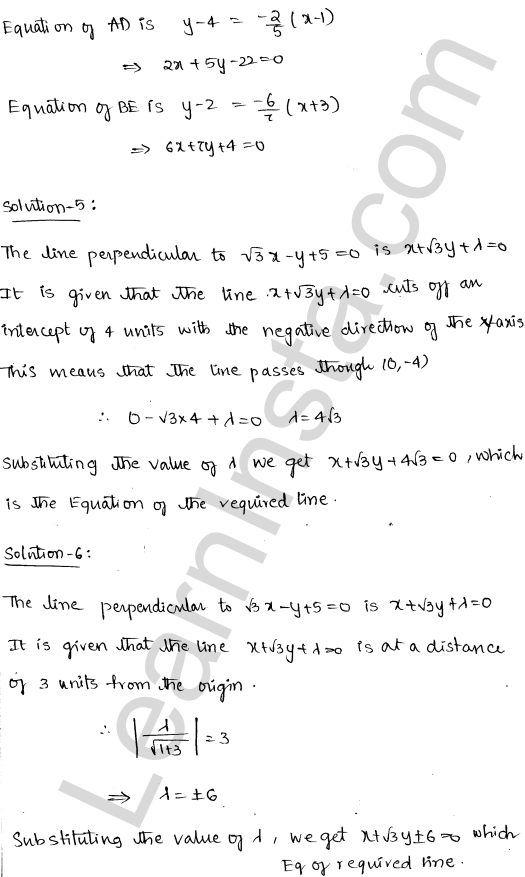 Equation of AD is y-4 = -2/5 (x-1)
⇒ 2x+5y-22=0
Equation of BE is y-2 = -6/7 (x+3)
⇒ 6x+7y+4=0
Solution-5:
The line perpendicular to √3x-y+5=0 is x+√3y+λ=0
It is given that the line x+√3y+λ=0 cuts off an
intercept of 4 units with the negative direction of the y axis
This means that the line passes though (0,-4)
∴ 0-√3×4+λ=0 λ=4√3
Substituting the value of λ we get x+√3y+4√3=0, which
is the Equation of the required line.
Solution-6:
The line perpendicular to √3x-y+5=0 is x+√3y+λ=0
It is given that the line x+√3y+λ=0 is at a distance
of 3 units from the origin.
∴ |λ/√1+3| = 3
⇒ λ=±6
Substituting the value of λ, we get x+√3y±6=0 which
Eq of required line.
LearnInsta.com